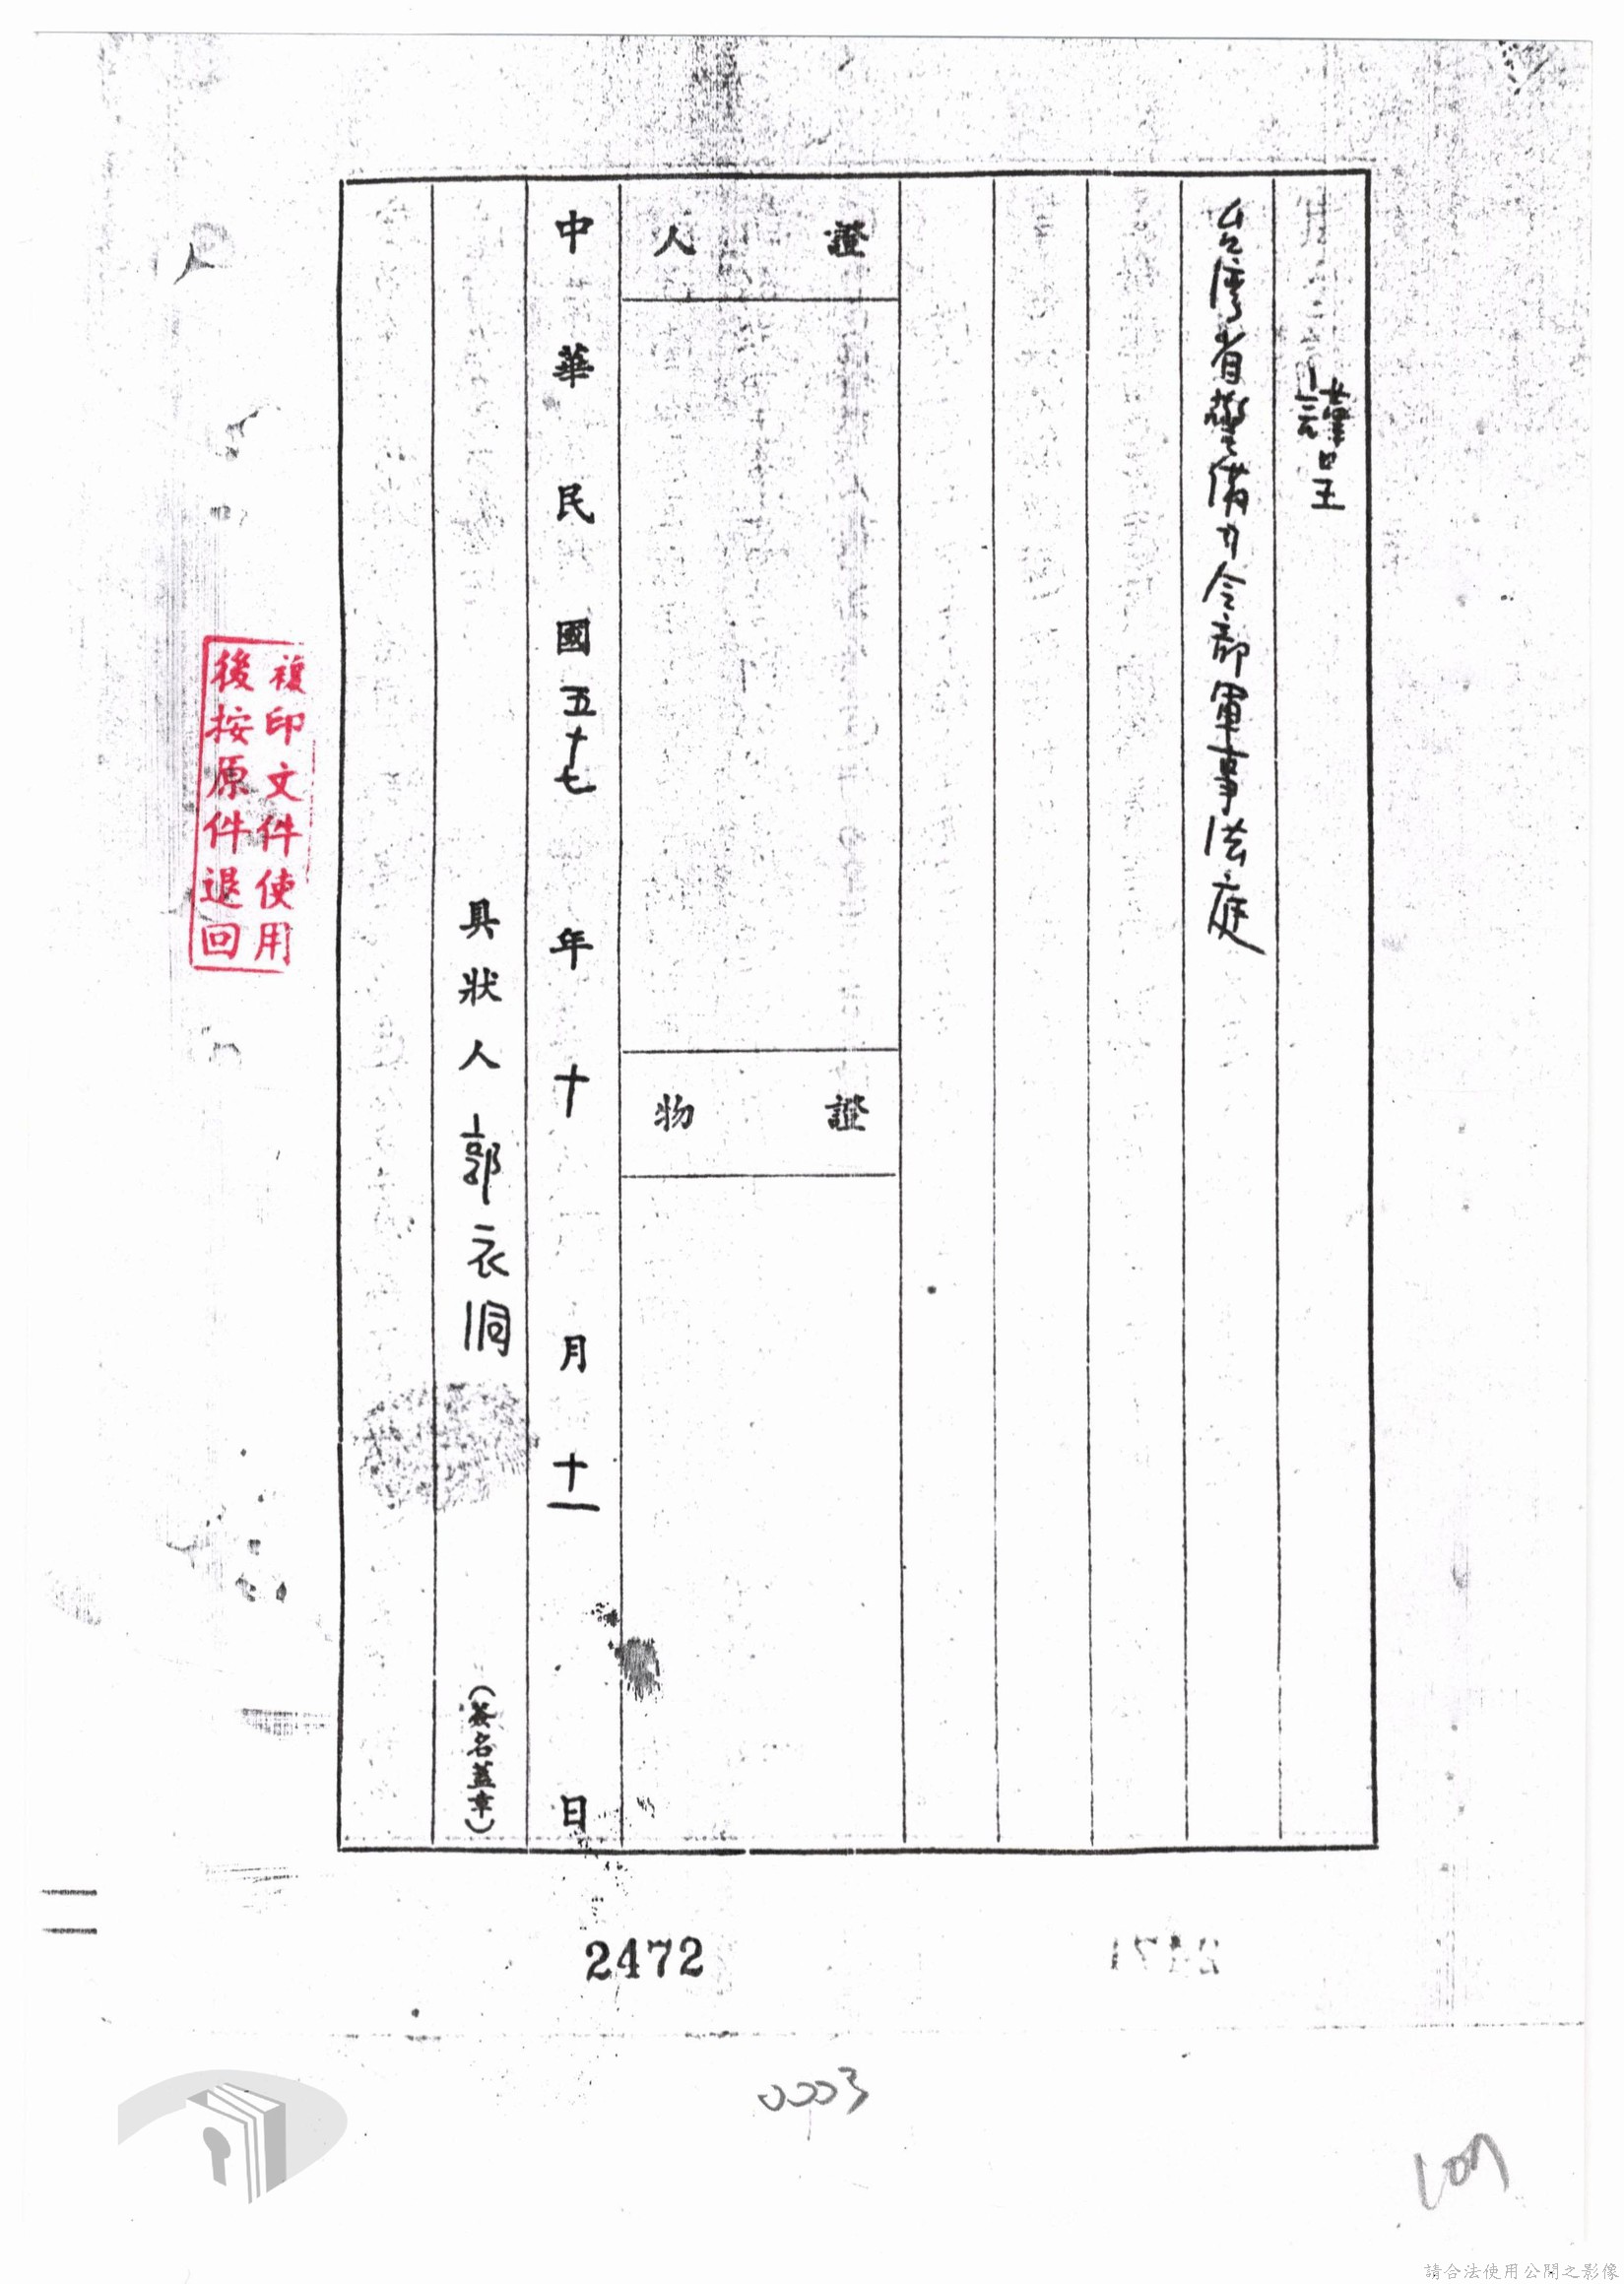 謹呈
台灣省警備力令部軍事法庭
證人
證物
中華民國五十七年十月十一日
具狀人郭衣洞
(簽名蓋章)
複印文件使用
後按原件退回
2472
2471
0003
107
請合法使用公開之影像